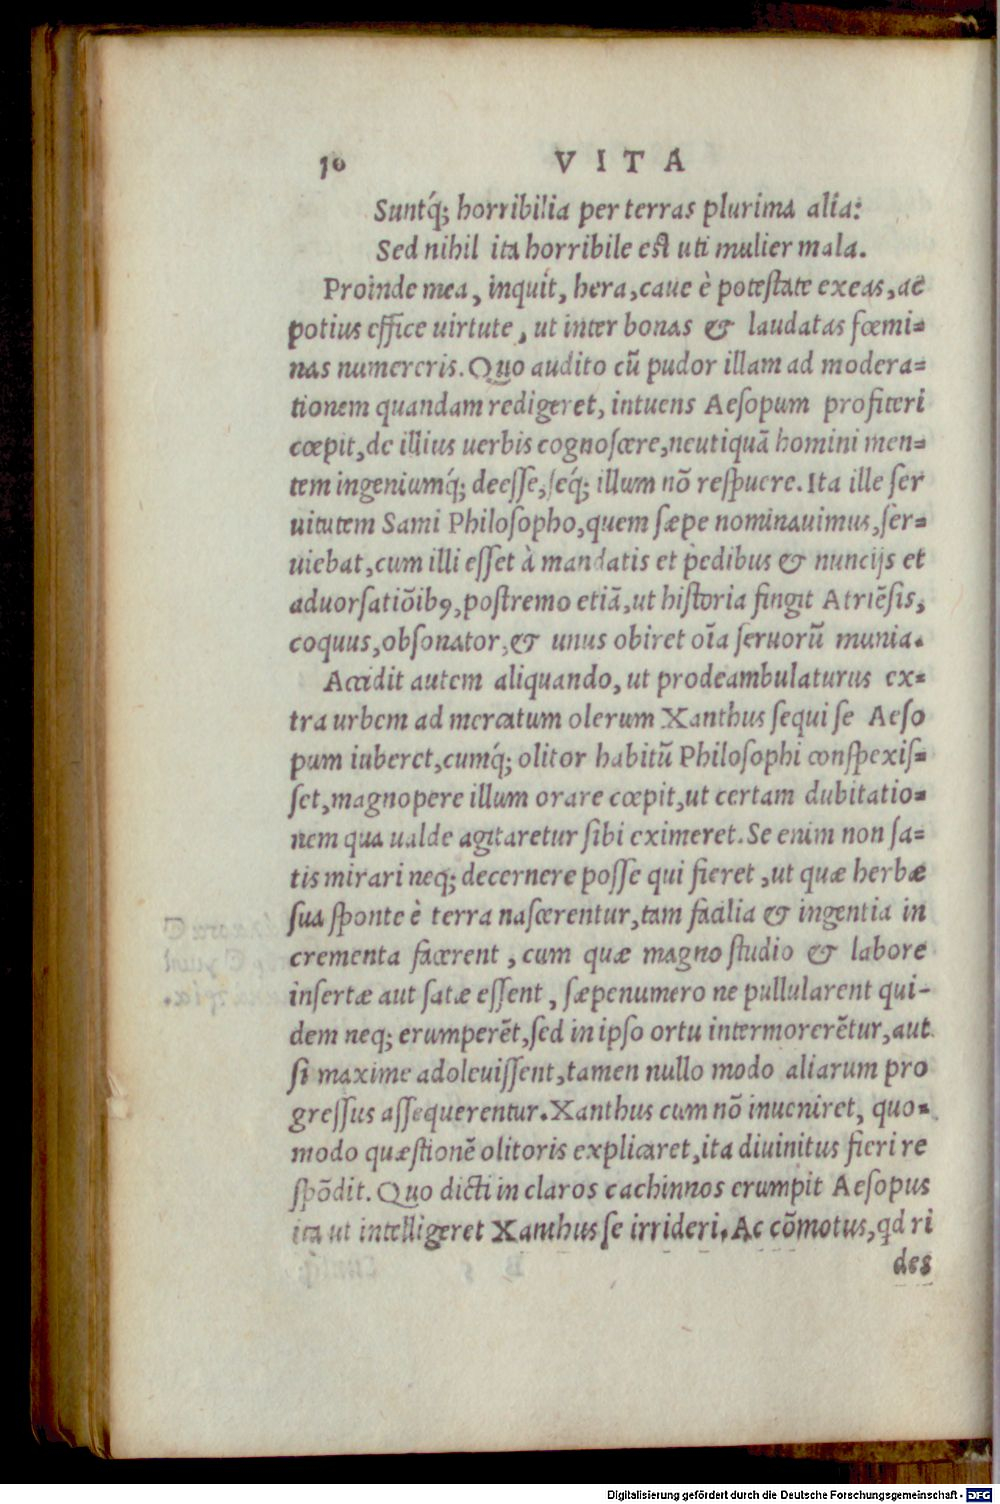 10 VITA
Suntq́; horribilia per terras plurima alia:
Sed nihil ita horribile est uti mulier mala.
Proinde mea, inquit, hera, caue è potestate exeas, ac
potius effice uirtute, ut inter bonas & laudatas fœmi=
nas numereris. Quo audito cũ pudor illam ad modera=
tionem quandam redigeret, intuens Aesopum profiteri
cœpit, de illius uerbis cognoscere, neutiquã homini men=
tem ingeniumq́; deesse, seq́; illum nõ respuere. Ita ille ser
uitutem Sami Philosopho, quem sæpe nominauimus, ser=
uiebat, cum illi esset à mandatis et pedibus & nuncijs et
aduorsatiõibꝯ, postremo etiã, ut historia fingit Atriẽsis,
coquus, obsonator, & unus obiret oĩa seruorũ munia.
Accidit autem aliquando, ut prodeambulaturus ex=
tra urbem ad mercatum olerum Xanthus sequi se Aeso
pum iuberet, cumq́; olitor habitũ Philosophi conspexis=
set, magnopere illum orare cœpit, ut certam dubitatio=
nem qua ualde agitaretur sibi eximeret. Se enim non sa=
tis mirari neq; decernere posse qui fieret, ut quæ herbæ
sua sponte è terra nascerentur, tam facilia & ingentia in
crementa facerent, cum quæ magno studio & labore
insertæ aut satæ essent, sæpenumero ne pullularent qui-
dem neq; erumperẽt, sed in ipso ortu intermorerẽtur, aut
si maxime adoleuissent, tamen nullo modo aliarum pro
gressus assequerentur. Xanthus cum nõ inueniret, quo=
modo quæstionẽ olitoris explicaret, ita diuinitus fieri re
spõdit. Quo dicti in claros cachinnos erumpit Aesopus
ita ut intelligeret Xanthus se irrideri. Ac cõmotus, qd ri
des
Digitalisierung gefördert durch die Deutsche Forschungsgemeinschaft - DFG